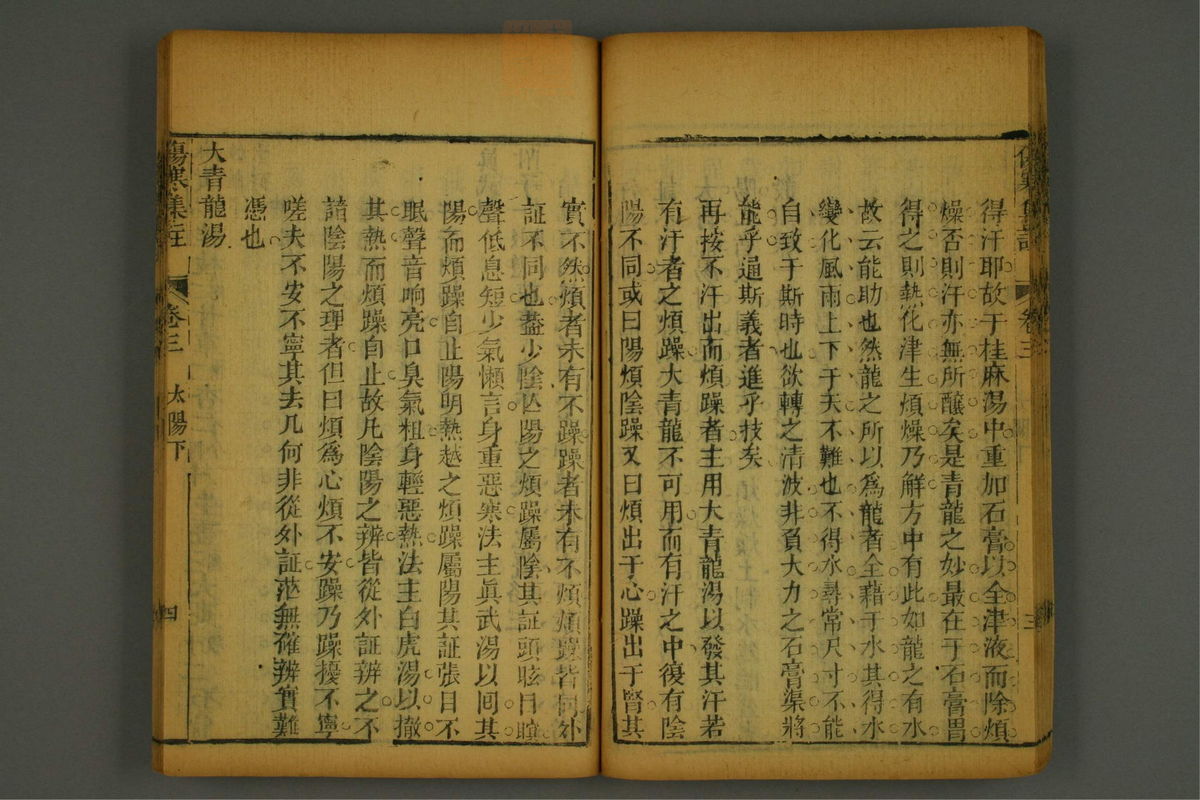 傷寒集註
卷三
三
得汗耶故于桂麻湯中重加石膏以全津液而除煩
燥否則汗亦無所釀矣是青龍之妙最在于石膏胃
得之則熱化津生煩燥乃解方中有此如龍之有水
故云能助也然龍之所以為龍者全藉于水其得水
變化風雨上下于天不難也不得水尋常尺寸不能
自致于斯時也欲轉之清波非負大力之石膏渠將
能乎通斯義者進乎技矣
再按不汗出而煩躁者主用大青龍湯以發其汗若
有汗者之煩躁大青龍不可用而有汗之中復有陰
陽不同或曰陽煩陰躁又曰煩出于心躁出于腎其
實不然煩者未有不躁躁者未有不煩煩躁皆同外
証不同也蓋少陰亾陽之煩躁屬陰其証頭眩目瞑
聲低息短少氣懶言身重惡寒法主眞武湯以囘其
陽而煩躁自止陽明熱越之煩躁屬陽其証張目不
眠聲音响亮口臭氣粗身輕惡熱法主白虎湯以撤
其熱而煩躁自止故凡陰陽之辨皆從外証辨之不
諳陰陽之理者但曰煩為心煩不安躁乃躁擾不寧
嗟夫不安不寧其去几何非從外証茫無確辨實難
憑也
大青龍湯
傷寒集註
卷三
太陽下
四